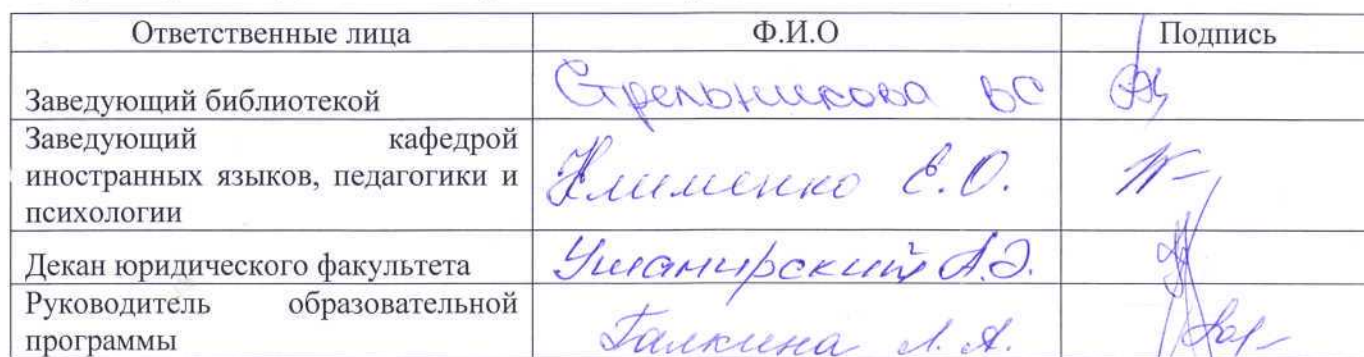 Ответственные лица Ф.И.О Подпись
Заведующий библиотекой Стрельникова ВС
Заведующий кафедрой
иностранных языков, педагогики и
психологии
Клименко Е.О.
Декан юридического факультета А.Э.
Руководитель образовательной
программы Галкина Л.А.